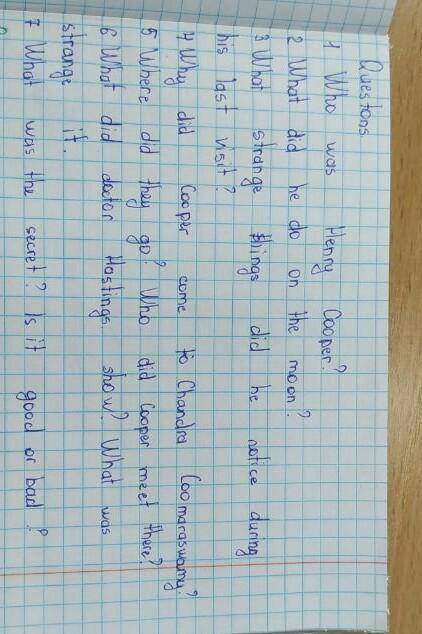 Questons
1 Who was Henry Cooper?
2 What did he do on the moon?
3 What strange things did he notice during
his last visit?
4 Why did Cooper come to Chandra Coomaraswamy?
5 Where did they go? Who did Cooper meet there?
6 What did doctor Hastings show? What was
strange it.
7 What was the secret? Is it good or bad?